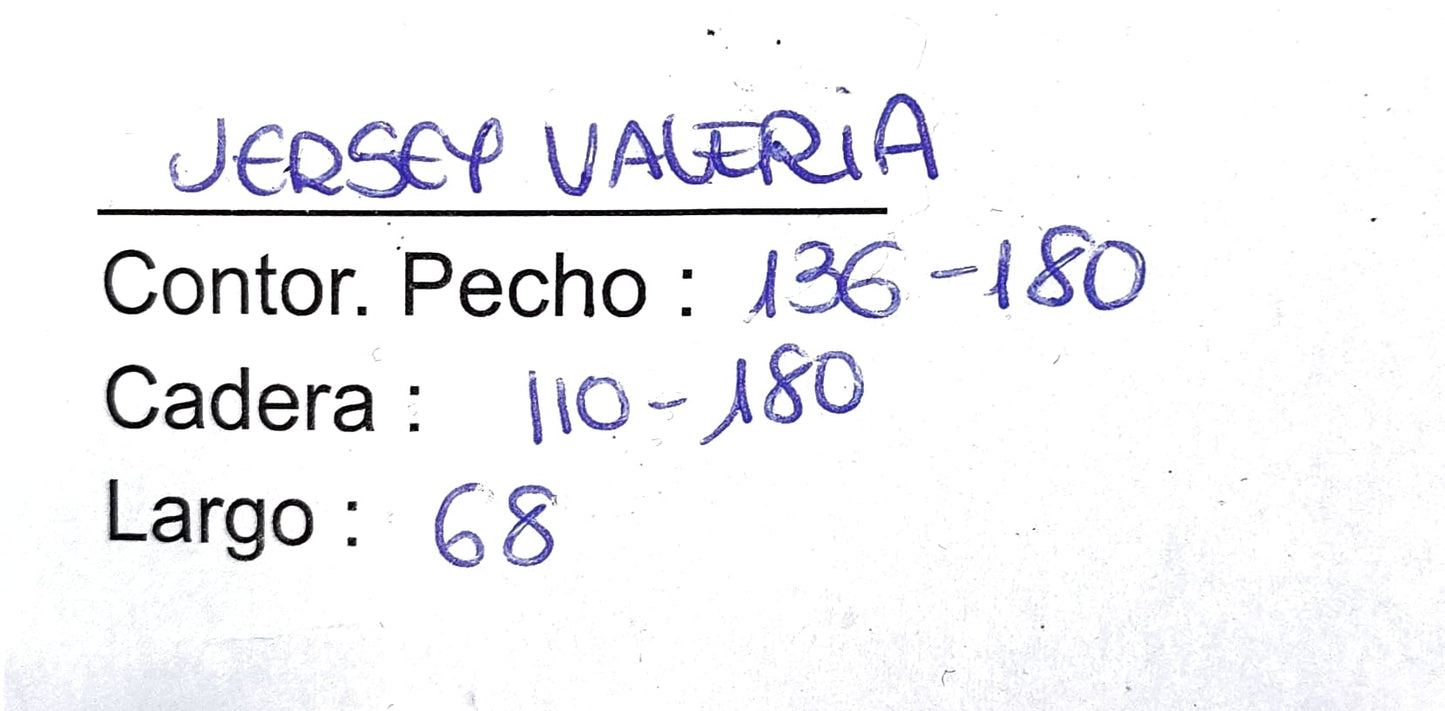 JERSEY VALERIA
Contor. Pecho : 136-180
Cadera : 110-180
Largo : 68